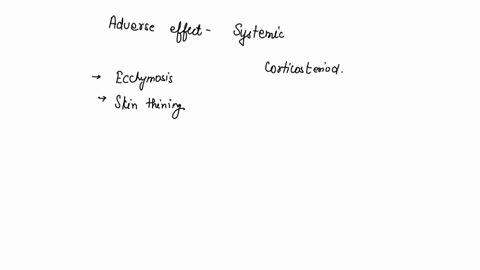 Adverse effect - Systemic
Corticosteriod.
→ Ecchymosis
→ Skin thining